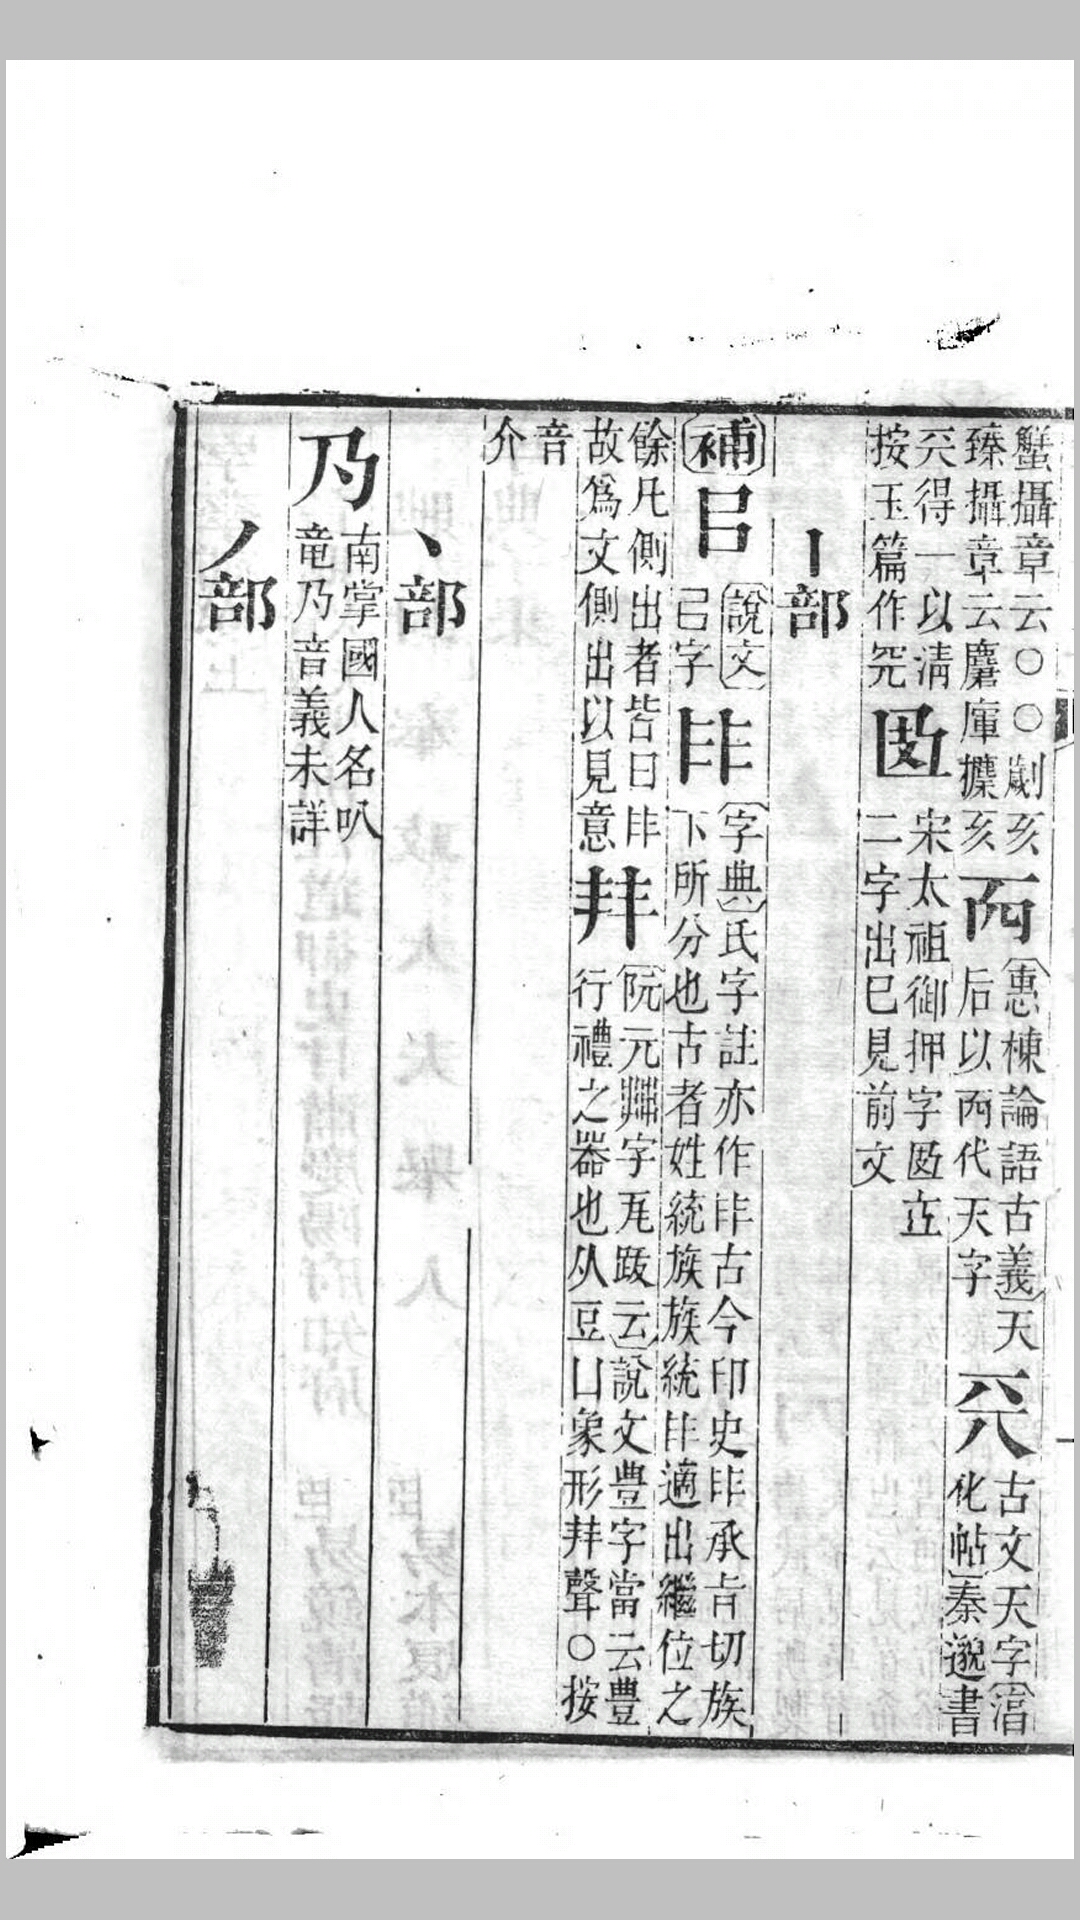 蟹攝章云○○劌亥
臻攝章云麿庫攈亥
兩
惠棟論語古義天
后以兩代天字
𠀘
古文天字滔
化帖秦邈書
𠀘得一以淸
按玉篇作𠀘
宋太祖御押字
二字出已見前文
丨部
補
㠯
說文
已字
𠂈
字典氏字註亦作𠂈古今印史𠂈承旨切族
下所分也古者姓統族族統𠂈適出繼位之
餘凡側出者皆曰𠂈
故爲文側出以見意
𠦜
阮元字瓦跋云說文豊字當云豊
行禮之器也从豆凵象形聲○按
音
介
丶部
乃
南掌國人名叭
竜乃音義未詳
丿部